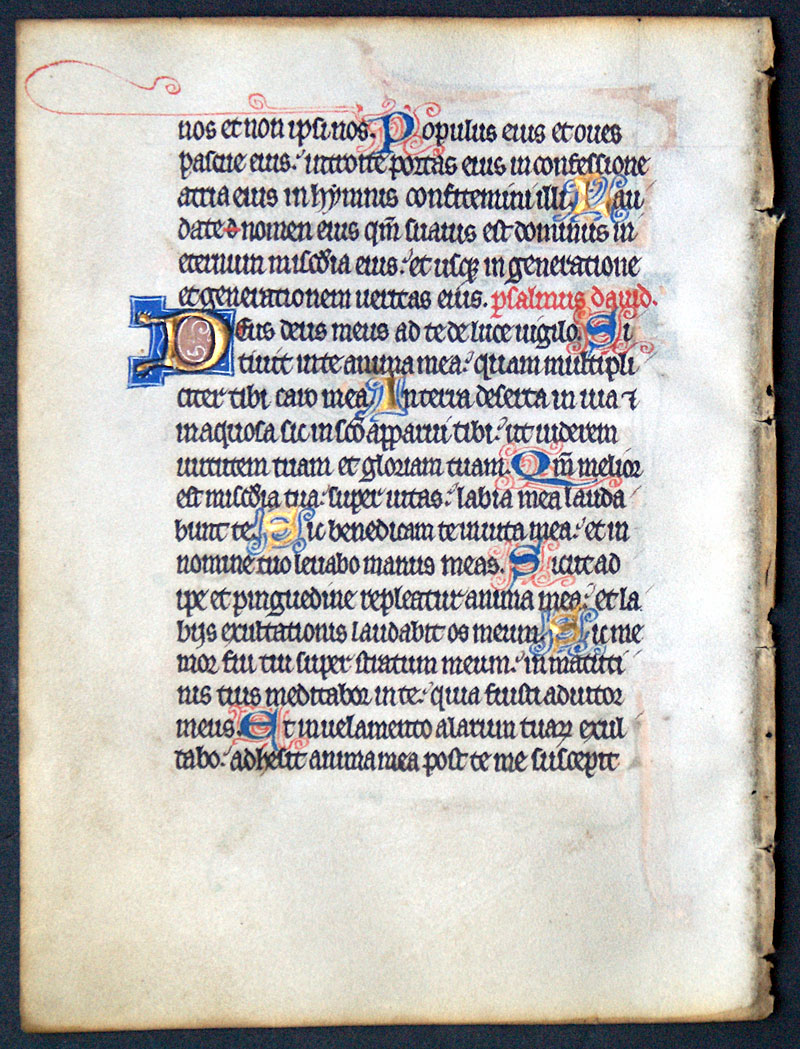 nos et non ipsi nos. Populus eius et oues
pascue eius: introite portas eius in confessione
atria eius in hymnis confitemini illi. Lau
date nomen eius qm̄ suauis est dominus in
eternum mis̄cdia eius: et usq; in generatione
et generationem ueritas eius. psalmus dauid.
Deus deus meus ad te de luce uigilo. Si
tiuit in te anima mea: quam multipli
citer tibi caro mea. In terra deserta in uia ⁊
inaquosa sic in scō apparui tibi: ut uiderem
uirtutem tuam et gloriam tuam. Qm̄ melior
est mis̄cdia tua: super uitas: labia mea lauda
bunt te. Sic benedicam te in uita mea: et in
nomine tuo leuabo manus meas. Sicut ad
ipe et pinguedine repleatur anima mea: et la
bijs exultationis laudabit os meum. Sic me
mor fui tui super stratum meum: in matuti
nis tuis meditabor in te: quia fuisti adiutor
meus. Et in uelamento alarum tuaꝝ exul
tabo: adhesit anima mea post te me suscepit